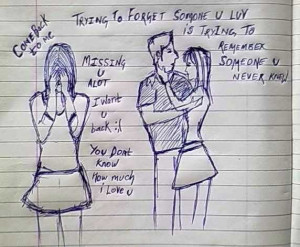 COME BACK
TO ME
TRYING TO FORGET SOMONE U LUV
IS TRYING TO
REMEMBER
SOMEONE U
NEVER KNEW
MISSING
U
ALOT
I WANT
U
back :(
YOU DONT
KNOW
HOW MUCH
i LOVE U